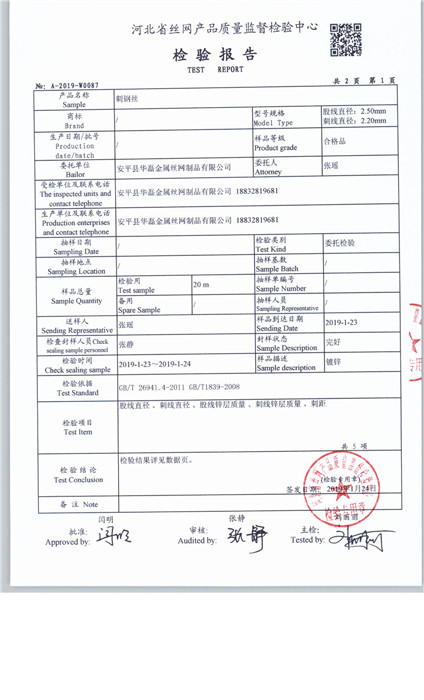 河北省丝网产品质量监督检验中心
检 验 报 告
TEST REPORT
№: A-2019-W0087
共 2 页 第 1 页
产品名称 Sample
刺钢丝
商标 Brand
/
型号规格 Model Type
股线直径: 2.50mm
刺线直径: 2.20mm
生产日期/批号 Production date/batch
/
样品等级 Product grade
合格品
委托单位 Bailor
安平县华磊金属丝网制品有限公司
委托人 Attorney
张瑶
受检单位及联系电话 The inspected units and contact telephone
安平县华磊金属丝网制品有限公司 18832819681
生产单位及联系电话 Production enterprises and contact telephone
安平县华磊金属丝网制品有限公司 18832819681
抽样日期 Sampling Date
/
检验类别 Test Kind
委托检验
抽样地点 Sampling Location
/
抽样基数 Sample Batch
/
样品总量 Sample Quantity
检验用 Test sample
20 m
抽样单编号 Sample Number
/
备用 Spare Sample
/
抽样人员 Sampling Representative
/
送样人 Sending Representative
张瑶
样品到达日期 Sending Date
2019-1-23
检查封样人员Check sealing sample personnel
张静
封样状态 Sample Description
完好
检验时间 Check sealing sample
2019-1-23～2019-1-24
样品描述 Sample description
镀锌
检验依据 Test Standard
GB/T 26941.4-2011 GB/T1839-2008
检验项目 Test Item
股线直径、刺线直径、股线锌层质量、刺线锌层质量、刺距
共 5 项
检验结论 Test Conclusion
检验结果详见数据页。
(检验专用章)
签发日期: 2019年1月24日
检验专用章
备 注 Note
/
闫明
张静
批准: Approved by:
审核: Audited by:
主检: Tested by: